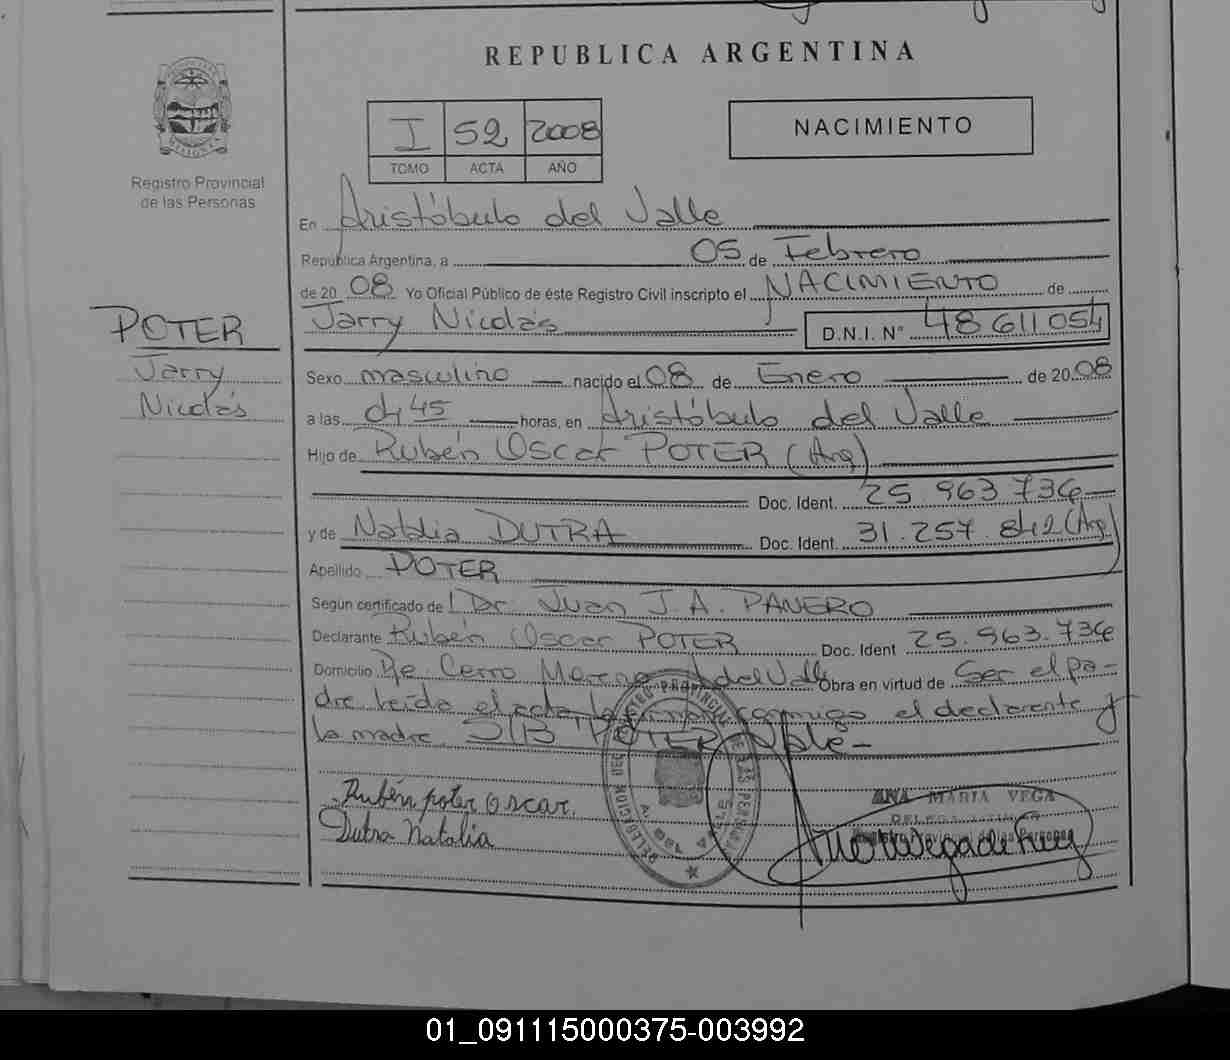 REPUBLICA ARGENTINA
MISIONES
Registro Provincial
de las Personas
I 52 2008
TOMO ACTA AÑO
NACIMIENTO
En Aristóbulo del Valle
República Argentina, a 05 de Febrero
de 20 08 Yo Oficial Público de éste Registro Civil inscripto el NACIMIENTO de
Jarry Nicolás D.N.I. N° 48 611 054
POTER
Jarry
Nicolás
Sexo masculino nacido el 08 de Enero de 20 08
a las 45 horas, en Aristóbulo del Valle
Hijo de Rubén Oscar POTER (Arg)
Doc. Ident. 25 963 736
y de Natalia DUTRA Doc. Ident. 31.257.842 (Arg)
Apellido POTER
Según certificado de Dr Juan J. A. PANERO
Declarante Rubén Oscar POTER Doc. Ident 25.963.736
Domicilio Pje. Cerro Moreno A del Valle Obra en virtud de Ser el pa-
dre leída el acta, la firman conmigo el declarante y
la madre S/B POTER Vale-
Rubén poter Oscar.
Dutra Natalia
ANA MARIA VEGA
Registro Provincial de las Personas
01_091115000375-003992